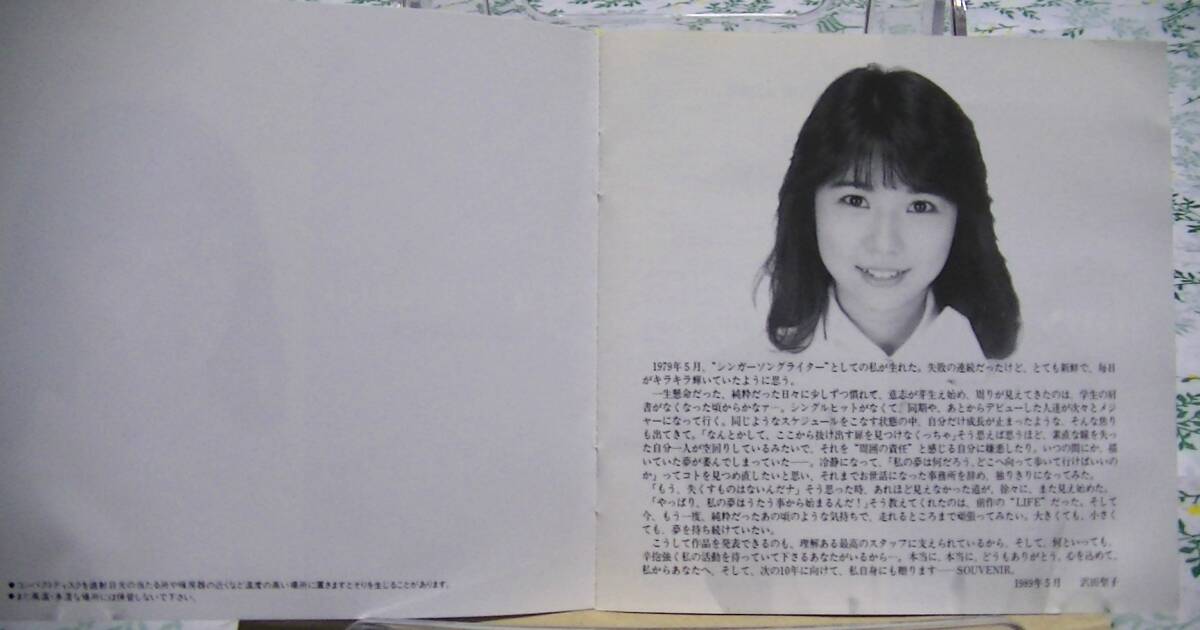 ●コンパクトディスクを直射日光の当たる所や暖房器の近くなど温度の高い場所に置きますとそりを生じることがあります。
●また高温・多湿な場所には保管しないで下さい。
1979年5月、“シンガーソングライター”としての私が生れた。失敗の連続だったけど、とても新鮮で、毎日
がキラキラ輝いていたように思う。
一生懸命だった、純粋だった日々に少しずつ慣れて、意志が芽生え始め、周りが見えてきたのは、学生の肩
書がなくなった頃からかなァー。シングルヒットがなくて、同期や、あとからデビューした人達が次々とメジ
ャーになって行く。同じようなスケジュールをこなす状態の中、自分だけ成長が止まったような、そんな焦り
も出てきて。「なんとかして、ここから抜け出す扉を見つけなくっちゃ」そう思えば思うほど、素直な瞳を失っ
た自分一人が空回りしているみたいで、それを“周囲の責任”と感じる自分に嫌悪したり。いつの間にか、描
いていた夢が萎んでしまっていた――。冷静になって、「私の夢は何だろう、どこへ向って歩いて行けばいいの
か」ってコトを見つめ直したいと思い、それまでお世話になった事務所を辞め、独りきりになってみた。
「もう、失くすものはないんだナ」そう思った時、あれほど見えなかった道が、徐々に、また見え始めた。
「やっぱり、私の夢はうたう事から始まるんだ！」そう教えてくれたのは、前作の“LIFE”だった。そして
今、もう一度、純粋だったあの頃のような気持ちで、走れるところまで頑張ってみたい。大きくても、小さく
ても、夢を持ち続けていたい。
こうして作品を発表できるのも、理解ある最高のスタッフに支えられているから、そして、何といっても、
辛抱強く私の活動を待っていて下さるあなたがいるから―。本当に、本当に、どうもありがとう。心を込めて、
私からあなたへ、そして、次の10年に向けて、私自身にも贈ります――SOUVENIR。
1989年5月 沢田聖子